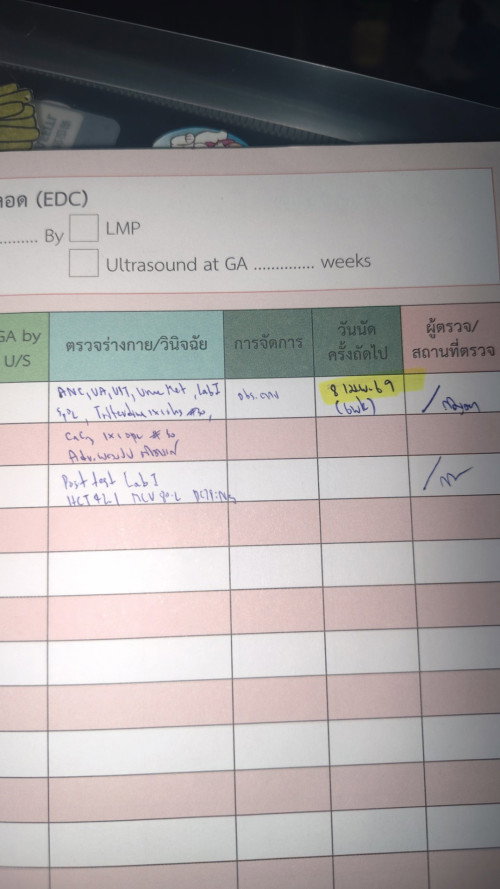 ลอด (EDC)
.......... By LMP
Ultrasound at GA .............. weeks
GA by
U/S
ตรวจร่างกาย/วินิจฉัย
การจัดการ
วันนัด
ครั้งถัดไป
ผู้ตรวจ/
สถานที่ตรวจ
ANC, UA, UPT, Urine Met, Lab I
Triferdine 1x1 #30,
8 เมย. 69
(6wk)
CaCO3 1x1 #30
Post test Lab I
HCT 41.1 MCV 90.2 DCIP:Neg